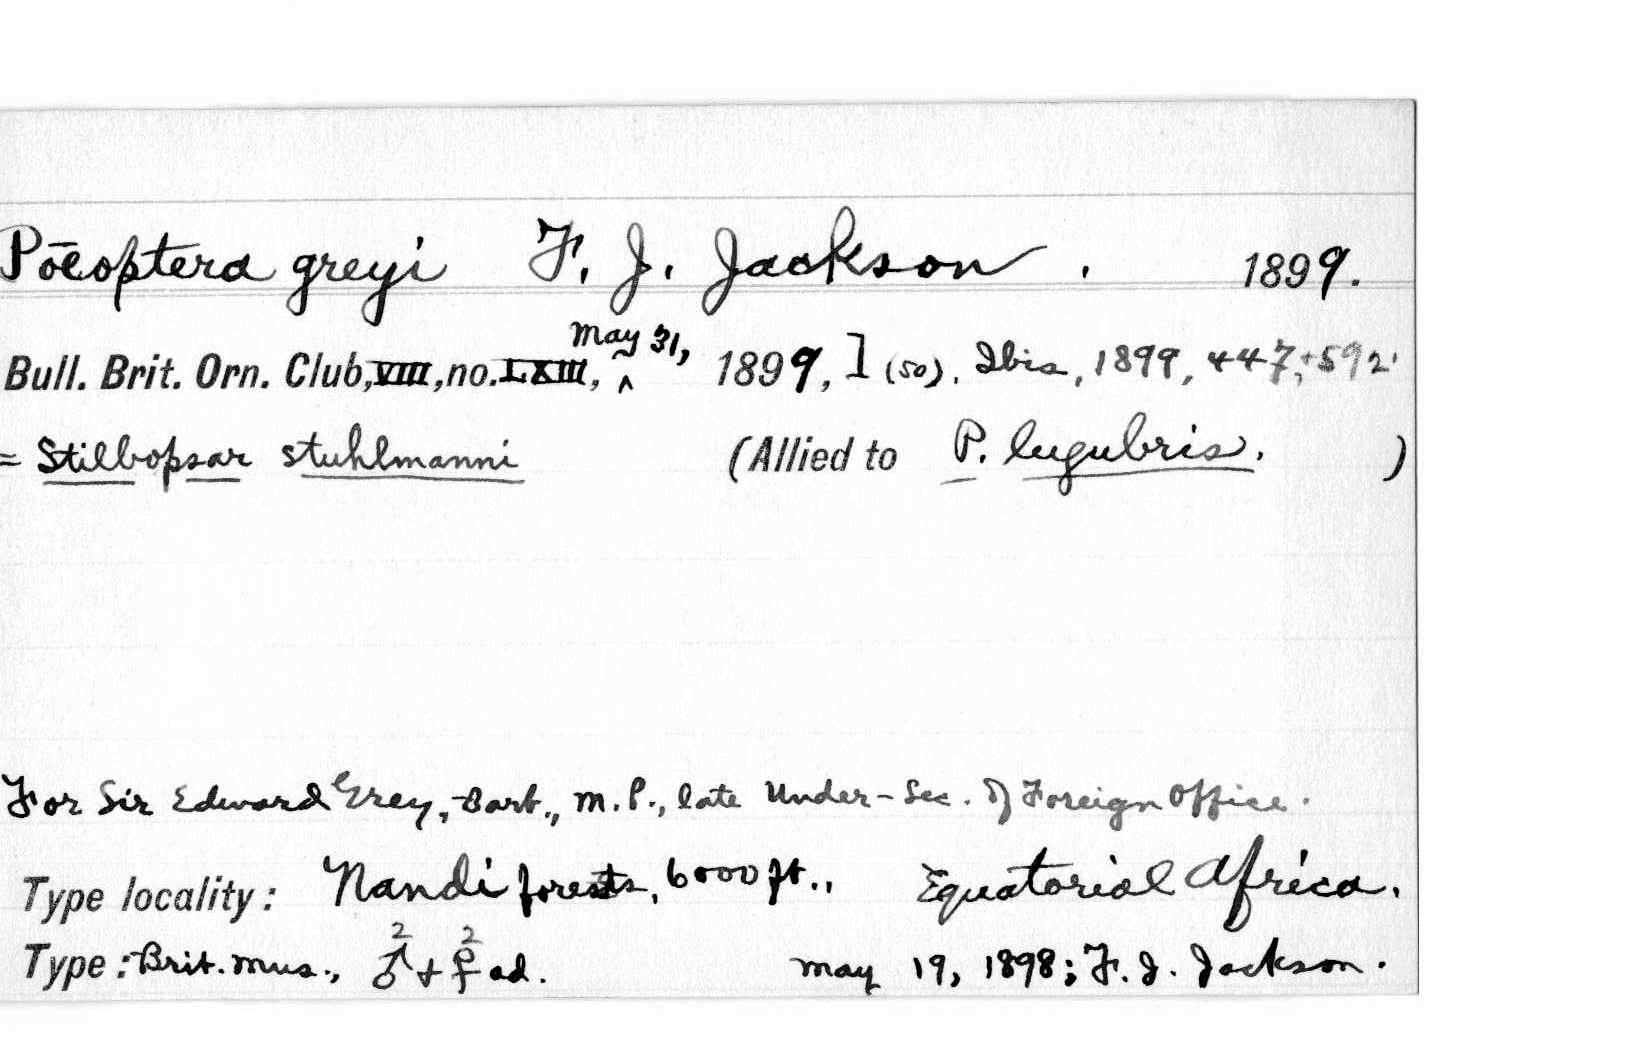 Pōeoptera greyi F. J. Jackson. 1899.
Bull. Brit. Orn. Club, VIII, no. LXIII, ^ May 31, 1899, l (50). Ibis, 1899, 447, + 592.
= Stilbopsar stuhlmanni (Allied to P. lugubris. )
For Sir Edward Grey, Bart., M.P., late Under-Sec. of Foreign Office.
Type locality: Nandi forests, 6000 ft., Equatorial Africa.
Type: Brit. Mus., 2 ♂ + 2 ♀ ad. May 19, 1898; F. J. Jackson.